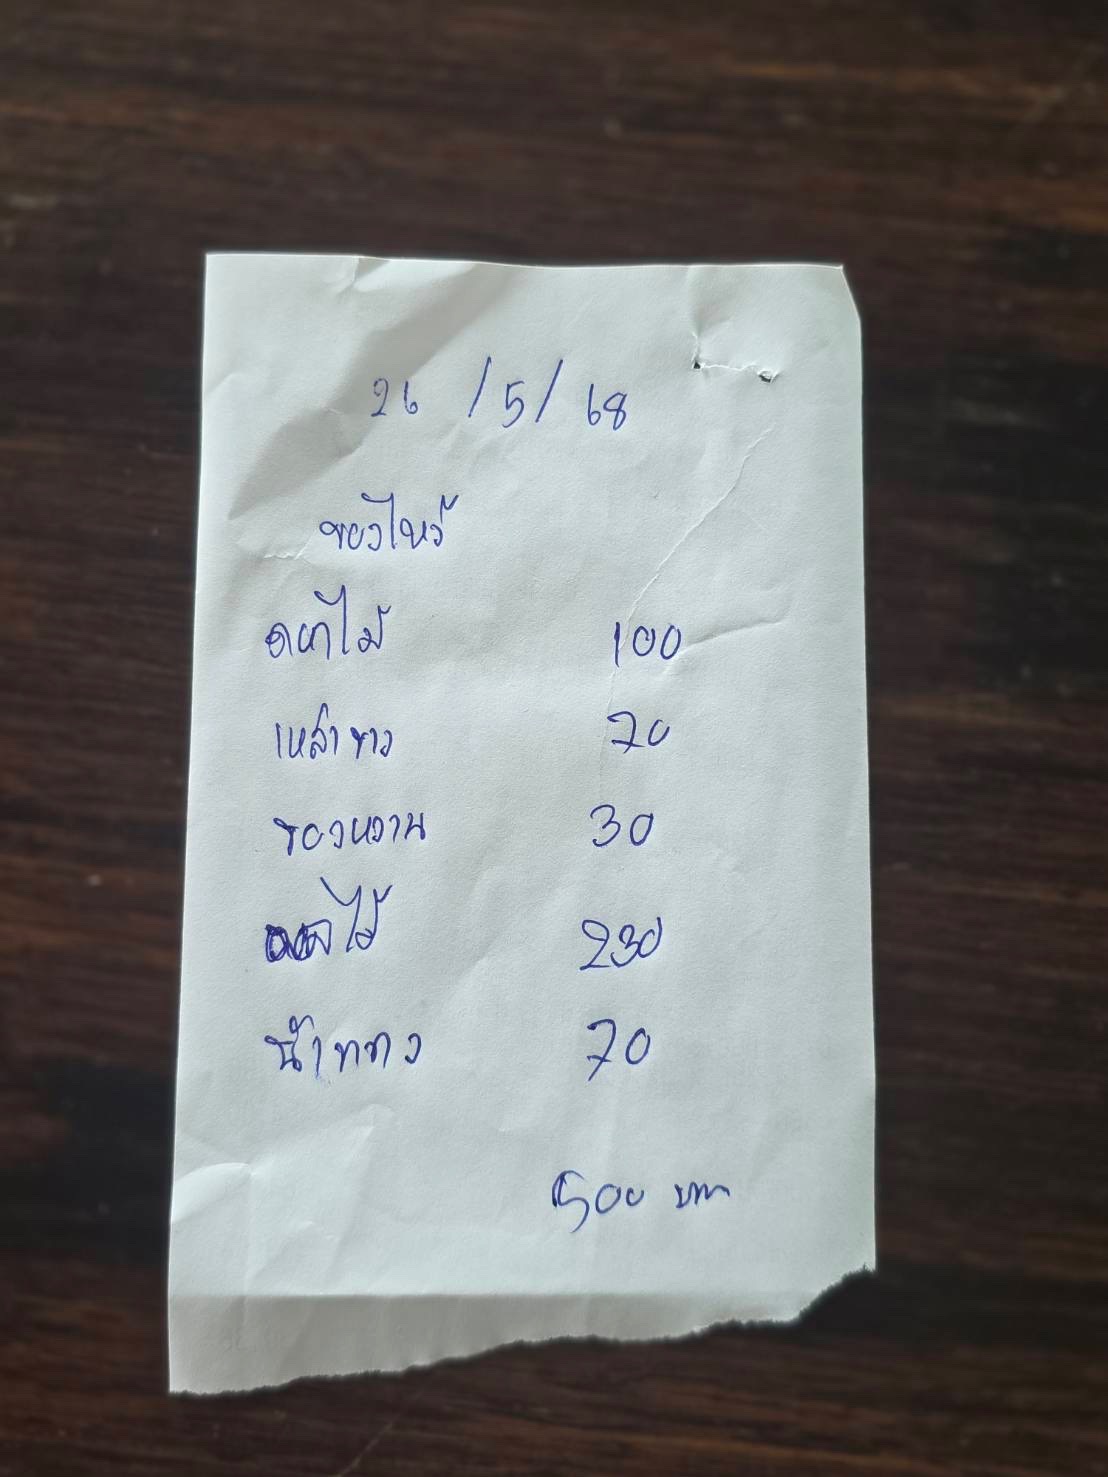 26 /5/ 68
ของไหว้
ดอกไม้ 100
เหล้าขาว 70
ของหวาน 30
ผลไม้ 230
น้ำทาง 70
500 บาท